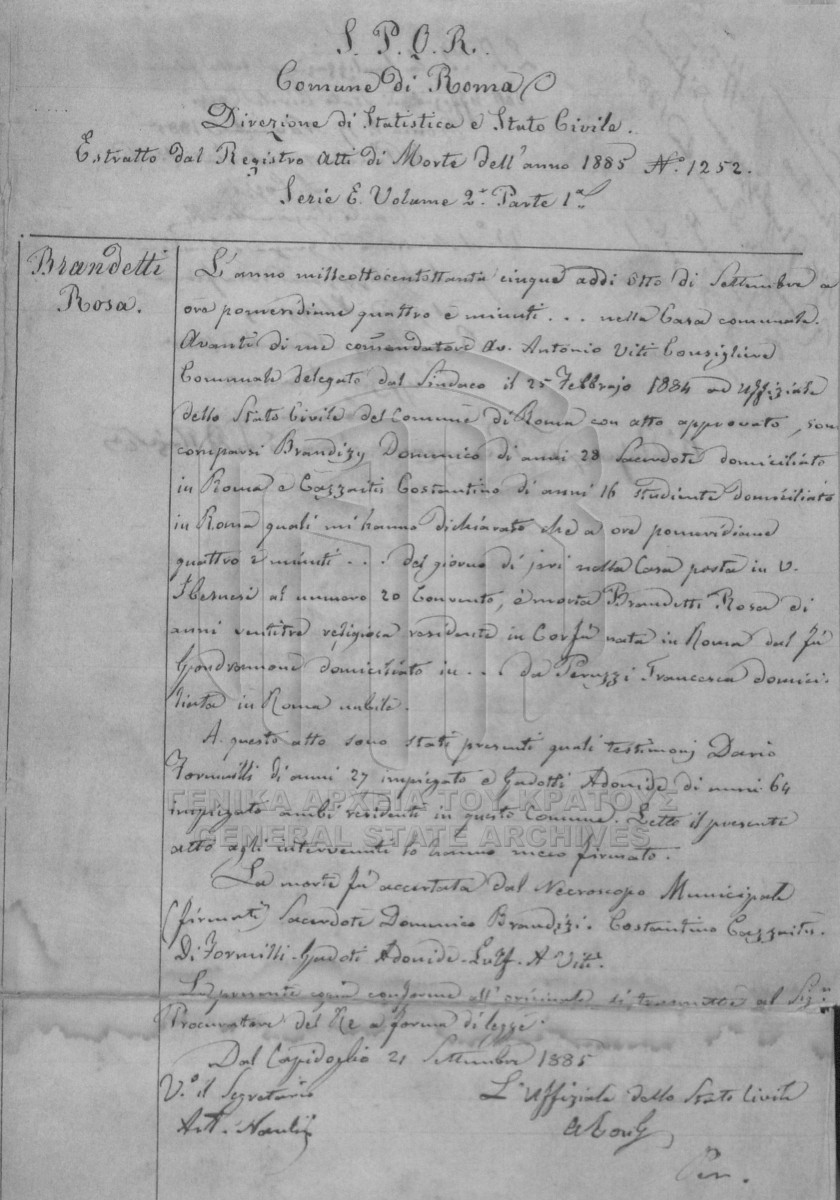 S. P. Q. R.
Comune di Roma
Direzione di Statistica e Stato Civile.
Estratto dal Registro Atti di Morte dell'anno 1885 N.º 1252.
Serie E. Volume 2.º Parte 1ª
Brandetti
Rosa.
L'anno millottocentottanta cinque addi otto di Settembre a
ore pomeridiane quattro e minuti . . . nella Casa comunale.
Avanti di me comendatore Av. Antonio Viti Consigliere
Comunale delegato dal Sindaco il 25 Febbrajo 1884 ad Uffiziale
dello Stato Civile del Comune di Roma con atto approvato, sono
comparsi Brandizy Domenico di anni 28 Sacerdote domiciliato
in Roma e Cazzaitis Costantino di anni 16 studente domiciliato
in Roma quali mi hanno dichiarato che a ore pomeridiane
quattro e minuti . . . del giorno di jeri nella Casa posta in V.
al numero 20 Convento, è morta Brandetti Rosa di
anni ventitre religiosa residente in Corfù nata in Roma dal fù
domiciliato in . . . da Peruzzi Francesca domici-
liata in Roma nubile.
A questo atto sono stati presenti quali testimonj Dario
Formilli di anni 27 impiegato e Gadotti Adonide di anni 64
impiegato ambi residenti in questo Comune. Letto il presente
atto agli intervenuti lo hanno meco firmato.
La morte fù accertata dal Necroscopo Municipale
(firmati) Sacerdote Domenico Brandizi. Costantino Cazzaitis.
D. Formilli - Gadotti Adonide - A Viti.
La presente copia conforme all'originale si trasmette al Sig.
Procuratore del Re a forma di legge.
Dal Capidoglio 21 Settembre 1885
V.º il Segretario
L'Uffiziale dello Stato Civile
ΓΕΝΙΚΑ ΑΡΧΕΙΑ ΤΟΥ ΚΡΑΤΟΥΣ
GENERAL STATE ARCHIVES